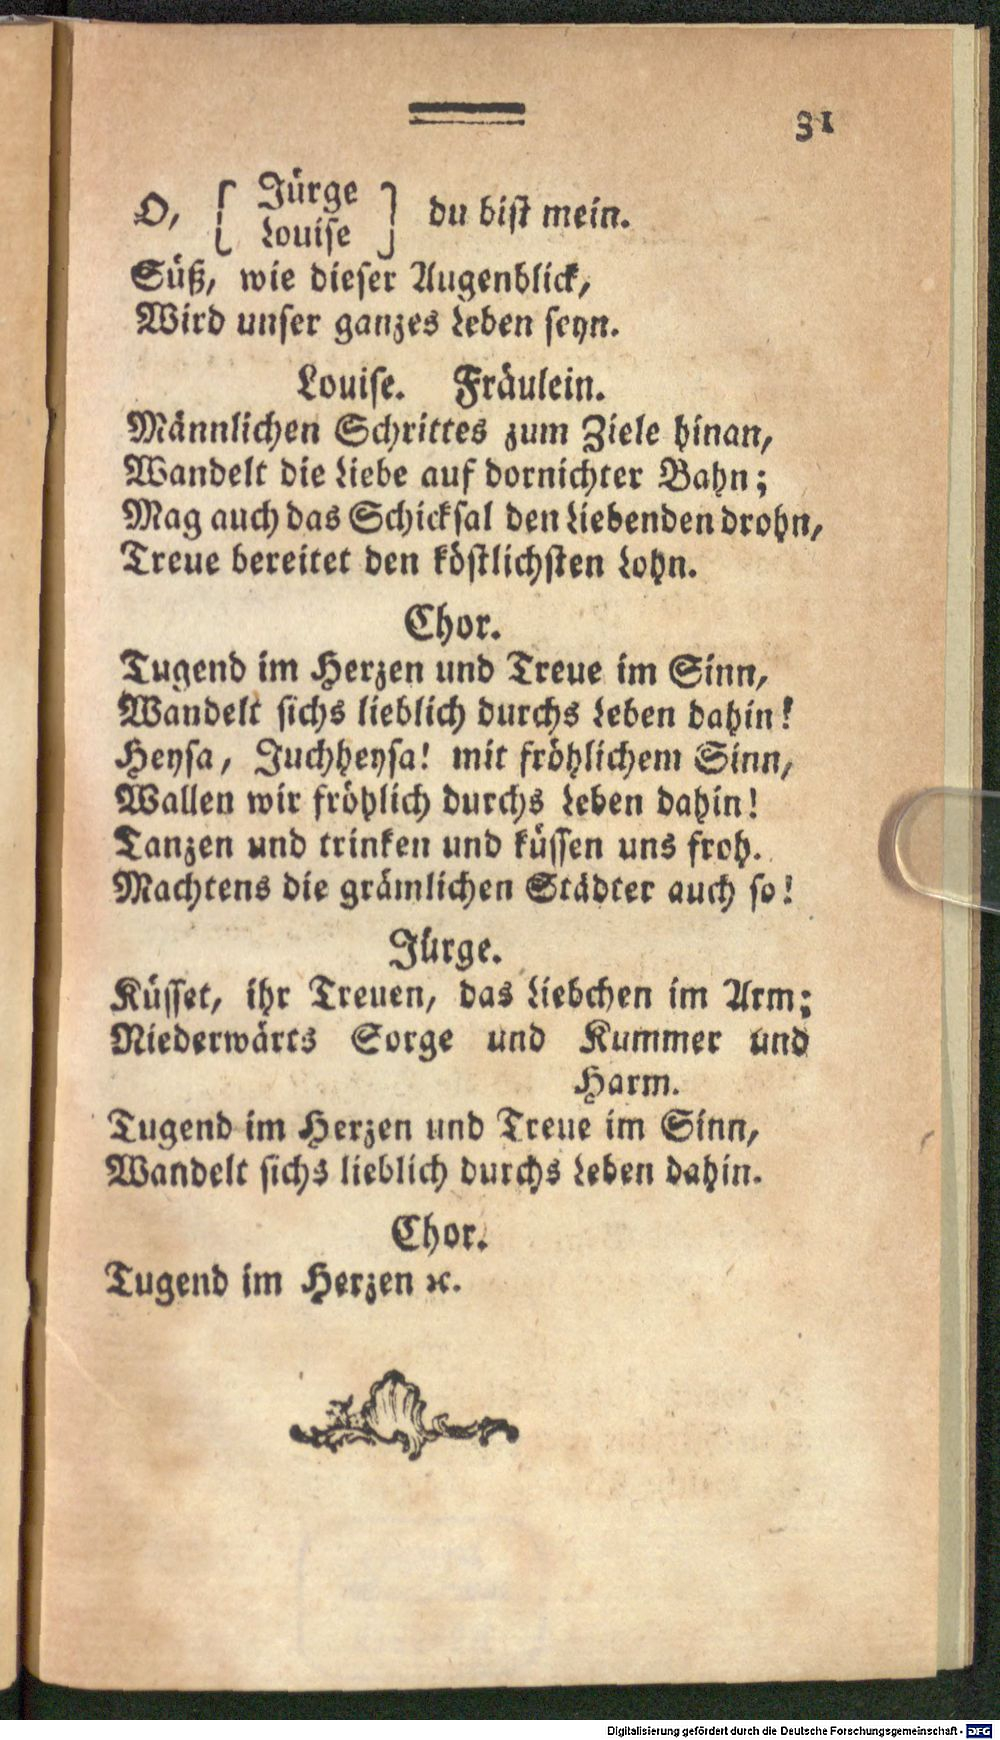 31
O, { Jürge
Louise } du bist mein.
Süß, wie dieser Augenblick,
Wird unser ganzes Leben seyn.
Louise. Fräulein.
Männlichen Schrittes zum Ziele hinan,
Wandelt die Liebe auf dornichter Bahn;
Mag auch das Schicksal den Liebenden drohn,
Treue bereitet den köstlichsten Lohn.
Chor.
Tugend im Herzen und Treue im Sinn,
Wandelt sichs lieblich durchs Leben dahin!
Heysa, Juchheysa! mit fröhlichem Sinn,
Wallen wir fröhlich durchs Leben dahin!
Tanzen und trinken und küssen uns froh.
Machtens die grämlichen Städter auch so!
Jürge.
Küsset, ihr Treuen, das Liebchen im Arm;
Niederwärts Sorge und Kummer und
Harm.
Tugend im Herzen und Treue im Sinn,
Wandelt sichs lieblich durchs Leben dahin.
Chor.
Tugend im Herzen ꝛc.
Digitalisierung gefördert durch die Deutsche Forschungsgemeinschaft - DFG